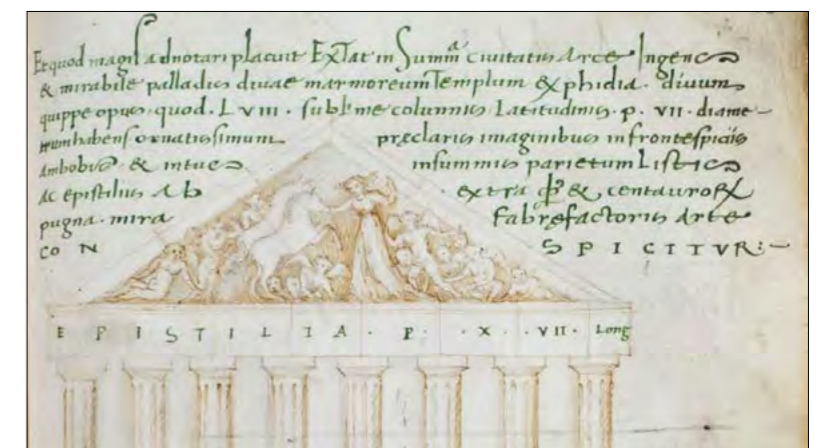 Et quod magis adnotari placuit ExTat in Summa civitatis Arce Ingens
& mirabile palladis divae marmoreum Templum & phidia. divum
quippe opus. quod. L VIII. sublime columnis Latitudinis. p. VII. diame-
trum habens ornatissimum præclaris imaginibus in frontespiciis
Ambobus. & intus insummis parietum Listis
Ac epistilus Ab extra & centauror
pugna. mira Fabrefactoris Arte
CO N S P I C I T V R:-
E P I S T I L I A . P . X . VII . Long